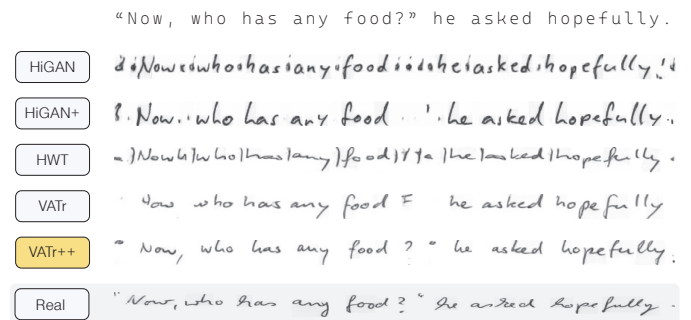 “Now, who has any food?” he asked hopefully.
HiGAN Now who has any food he asked hopefully
HiGAN+ Now.. who has any food . . '. he asked hopefully.
HWT Now who has any food he asked hopefully .
VATr Now who has any food he asked hopefully
VATr++ " Now, who has any food ? " he asked hopefully.
Real "Now, who has any food? " he asked hopefully.